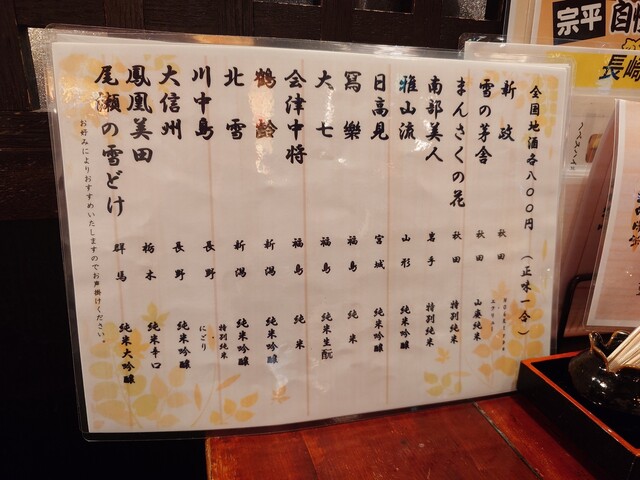 全国地酒各八〇〇円（正味一合）
新政 秋田 エクリュ
雪の茅舎 秋田 山廃純米
まんさくの花 秋田 特別純米
南部美人 岩手 特別純米
雅山流 山形 純米吟醸
日高見 宮城 純米吟醸
冩樂 福島 純米
大七 福島 純米生酛
会津中将 福島 純米
鶴齢 新潟 純米吟醸
北雪 新潟 純米吟醸
川中島 長野 特別純米 にごり
大信州 長野 純米吟醸
鳳凰美田 栃木 純米辛口
尾瀬の雪どけ 群馬 純米大吟醸
お好みによりおすすめいたしますのでお声掛けください。
宗平
自慢
長崎